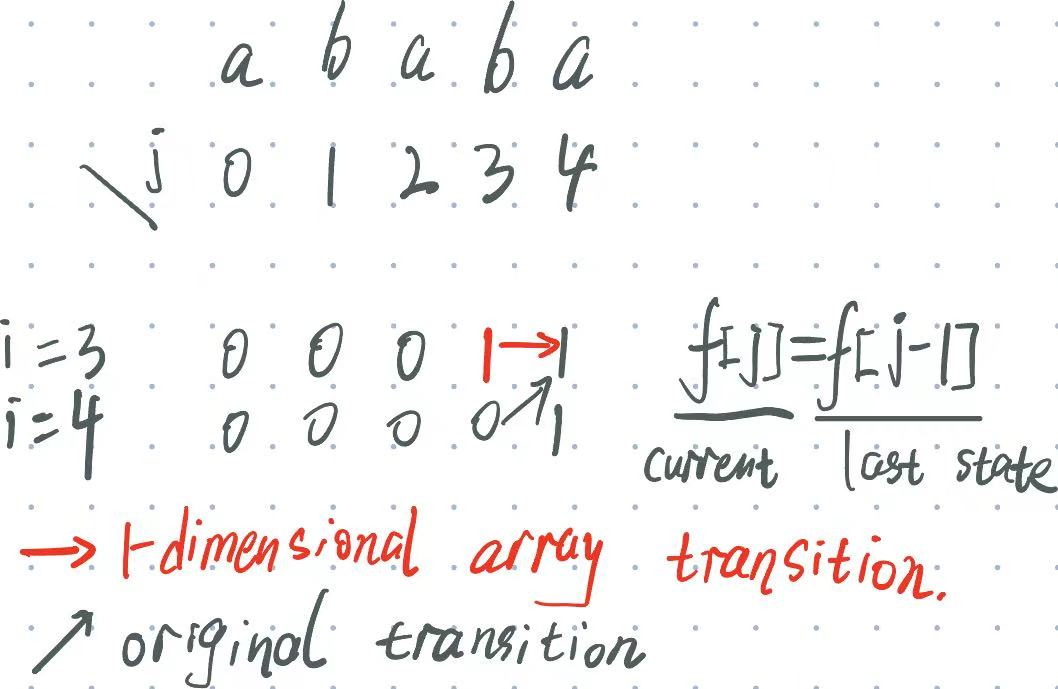 a b a b a
j 0 1 2 3 4
i=3 0 0 0 1→1 f[j]=f[j-1]
i=4 0 0 0 0↗1 current last state
→ 1-dimensional array transition.
↗ original transition